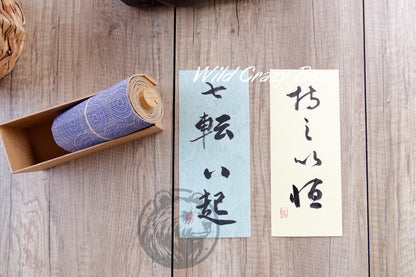 Wild Crazy Bear
七転八起
持之以恒